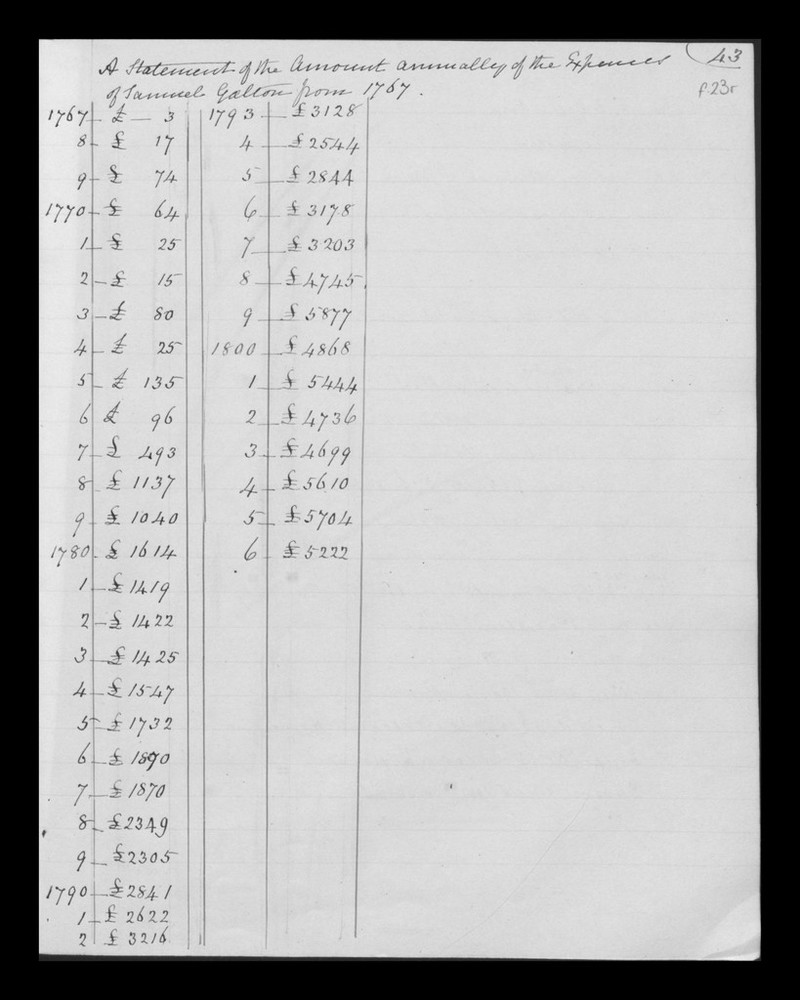 43
A Statement of the Amount annually of the Expences
of Samuel Galton from 1767.
p.23r
1767 £ — 3
8 - £ 17
9 - £ 74
1770 - £ 64
1 - £ 25
2 - £ 15
3 - £ 80
4 - £ 25
5 - £ 135
6 £ 96
7 - £ 493
8 - £ 1137
9 - £ 1040
1780 - £ 1614
1 - £ 1419
2 - £ 1422
3 - £ 1425
4 - £ 1547
5 - £ 1732
6 - £ 1890
7 - £ 1870
8 - £2349
9 - £2305
1790 - £2841
1 - £ 2622
2 £ 3216
1793 - £3128
4 - £2544
5 - £2844
6 - £3178
7 - £3203
8 - £4745.
9 - £5877
1800 - £4868
1 - £5444
2 - £4736
3 - £4699
4 - £5610
5 - £5704
6 - £5222